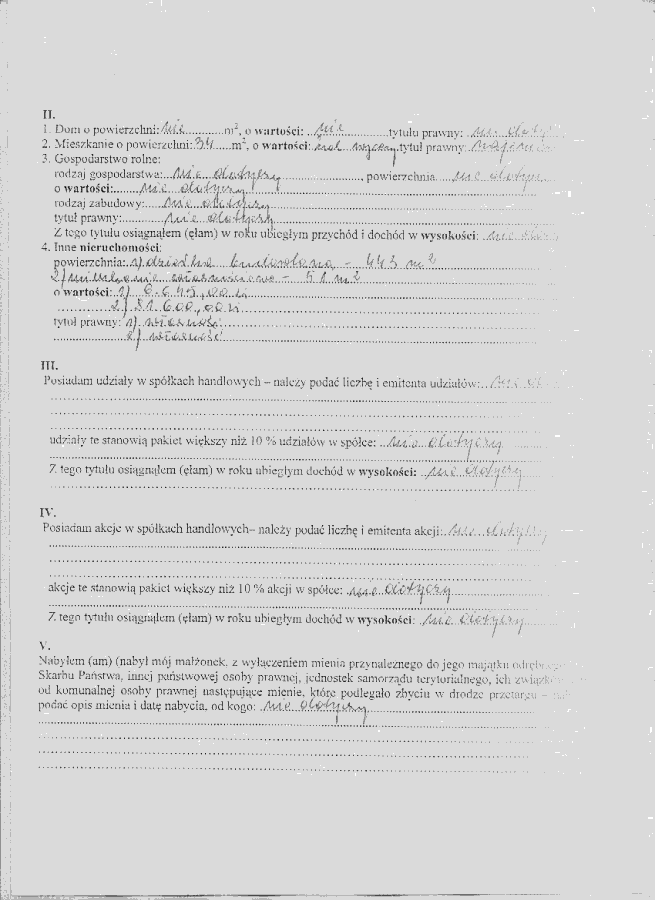 II.
1. Dom o powierzchni: nie ...........m², o wartości: ...nie ...........tytułu prawny: nie doty
2. Mieszkanie o powierzchni: 34 .....m², o wartości: .tytuł prawny: najem
3. Gospodarstwo rolne:
rodzaj gospodarstwa: nie dotyczy, powierzchnia nie dotyczy
o wartości: nie dotyczy
rodzaj zabudowy: nie dotyczy
tytuł prawny: nie dotyczy
Z tego tytułu osiągnąłem (ęłam) w roku ubiegłym przychód i dochód w wysokości: nie
4. Inne nieruchomości:
powierzchnia: 1) działka budowlana - 443 m2
2) mieszkanie - 51 m2
o wartości: 1) 6.645,00 zł
2) 81.600,00 zł
tytuł prawny: 1) własność
2) własność
III.
Posiadam udziały w spółkach handlowych – należy podać liczbę i emitenta udziałów: nie
udziały te stanowią pakiet większy niż 10 % udziałów w spółce: nie dotyczy
Z tego tytułu osiągnąłem (ęłam) w roku ubiegłym dochód w wysokości: nie dotyczy
IV.
Posiadam akcje w spółkach handlowych– należy podać liczbę i emitenta akcji: nie dotyczy
akcje te stanowią pakiet większy niż 10 % akcji w spółce: nie dotyczy
Z tego tytułu osiągnąłem (ęłam) w roku ubiegłym dochód w wysokości: nie dotyczy
V.
Nabyłem (am) (nabył mój małżonek, z wyłączeniem mienia przynależnego do jego majątku
Skarbu Państwa, innej państwowej osoby prawnej, jednostek samorządu terytorialnego, ich
od komunalnej osoby prawnej następujące mienie, które podlegało zbyciu w drodze przetargu –
podać opis mienia i datę nabycia, od kogo: nie dotyczy